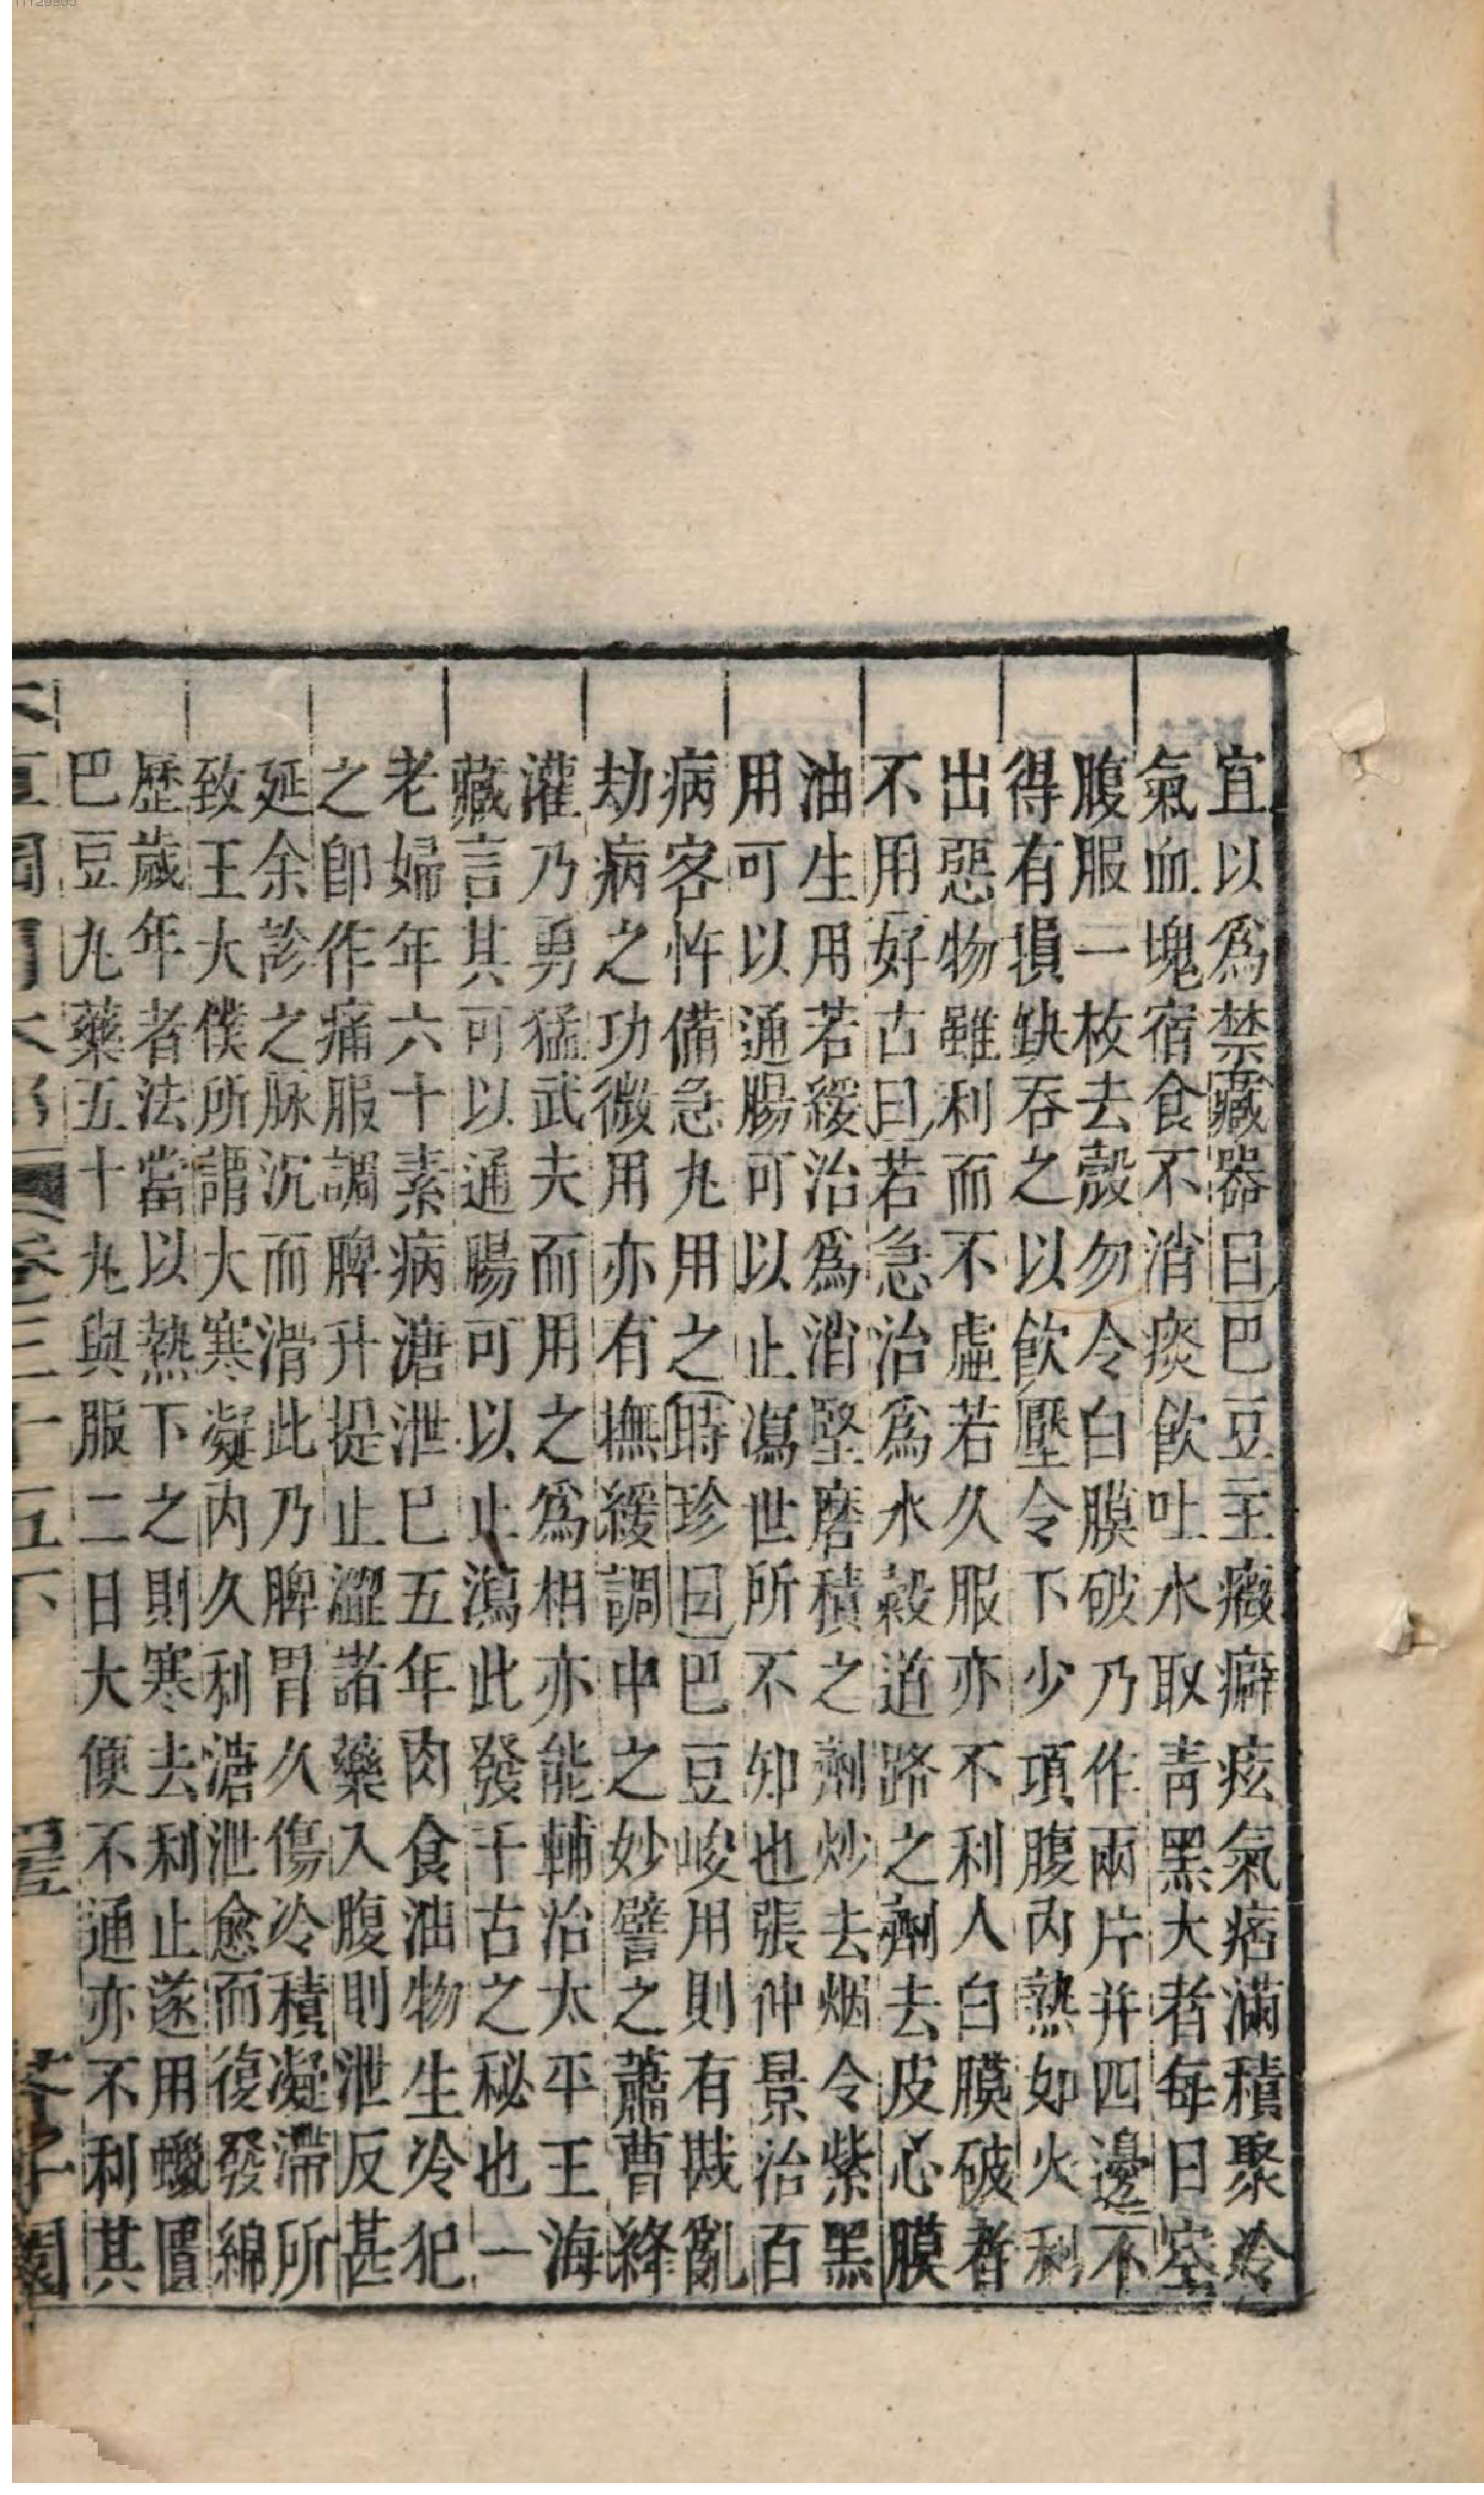 宜以爲禁藏器曰巴豆主癥癖痃氣痞滿積聚冷
氣血塊宿食不消痰飮吐水取青黑大者每日空
腹服一枚去殼勿令白膜破乃作兩片并四邊不
得有損缺吞之以飮壓令下少項腹內熱如火利
出惡物雖利而不虛若久服亦不利人白膜破者
不用好古曰若急治爲水穀道路之劑去皮心膜
油生用若緩治爲消堅磨積之劑炒去烟令紫黑
用可以通腸可以止瀉世所不知也張仲景治百
病客忤備急丸用之時珍曰巴豆峻用則有戡亂
劫病之功微用亦有撫緩調中之妙譬之蕭曹絳
灌乃勇猛武夫而用之爲相亦能輔治太平王海
藏言其可以通腸可以止瀉此發千古之秘也一
老婦年六十素病溏泄已五年肉食油物生冷犯
之卽作痛服調脾升提止澀諸藥入腹則泄反甚
延余診之脉沉而滑此乃脾胃久傷冷積凝滯所
致王大僕所謂大寒凝内久利溏泄愈而復發綿
歷歲年者法當以熱下之則寒去利止遂用蠟匱
巴豆丸藥五十丸與服二日大便不通亦不利其
卷三十五下 芥子園